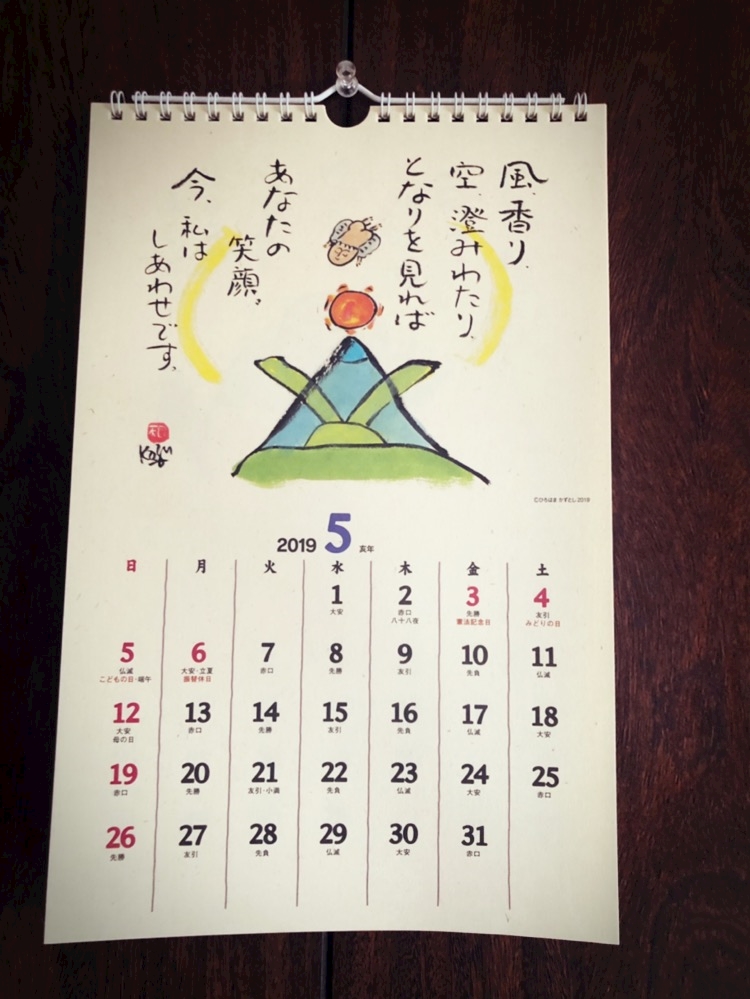 風、香り、
空、澄みわたり、
となりを見れば
あなたの
笑顔。
今、私は
しあわせです。
©ひろはま かずとし 2019
2019 5 亥年
日 月 火 水 木 金 土
1 2 3 4
大安 赤口 先勝 友引
八十八夜 憲法記念日 みどりの日
5 6 7 8 9 10 11
仏滅 大安・立夏 赤口 先勝 友引 先負 仏滅
こどもの日・端午 振替休日
12 13 14 15 16 17 18
大安 赤口 先勝 友引 先負 仏滅 大安
母の日
19 20 21 22 23 24 25
赤口 先勝 友引・小満 先負 仏滅 大安 赤口
26 27 28 29 30 31
先勝 友引 先負 仏滅 大安 赤口